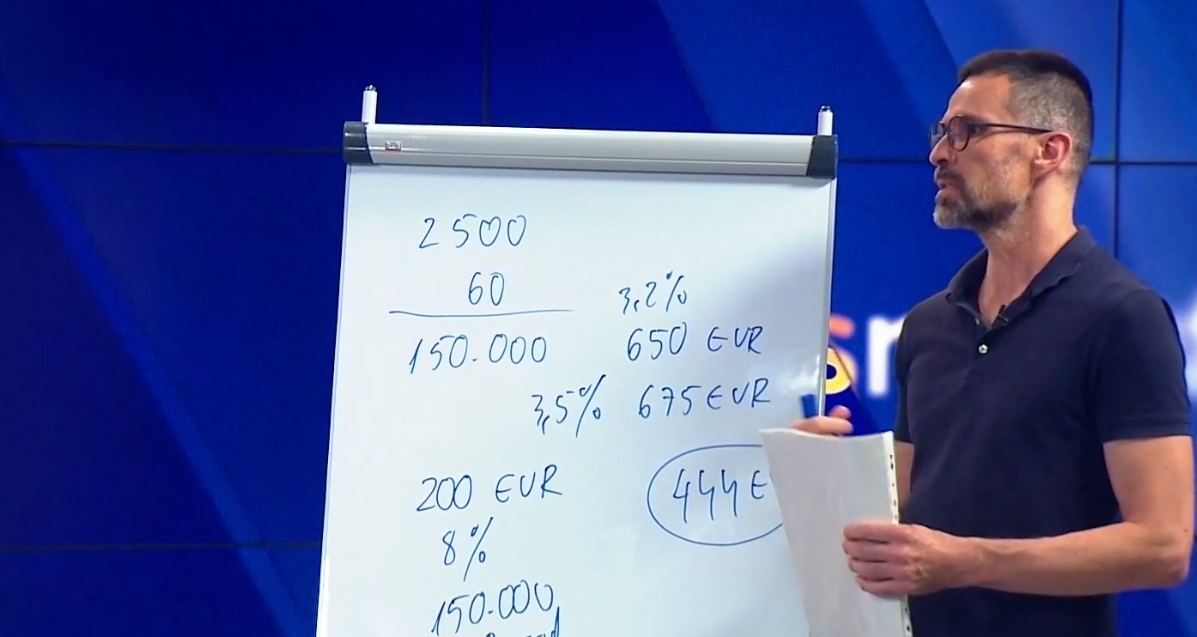 2500
60
150.000
3,2%
650 EUR
3,5% 675 EUR
200 EUR
8%
150.000
444 E